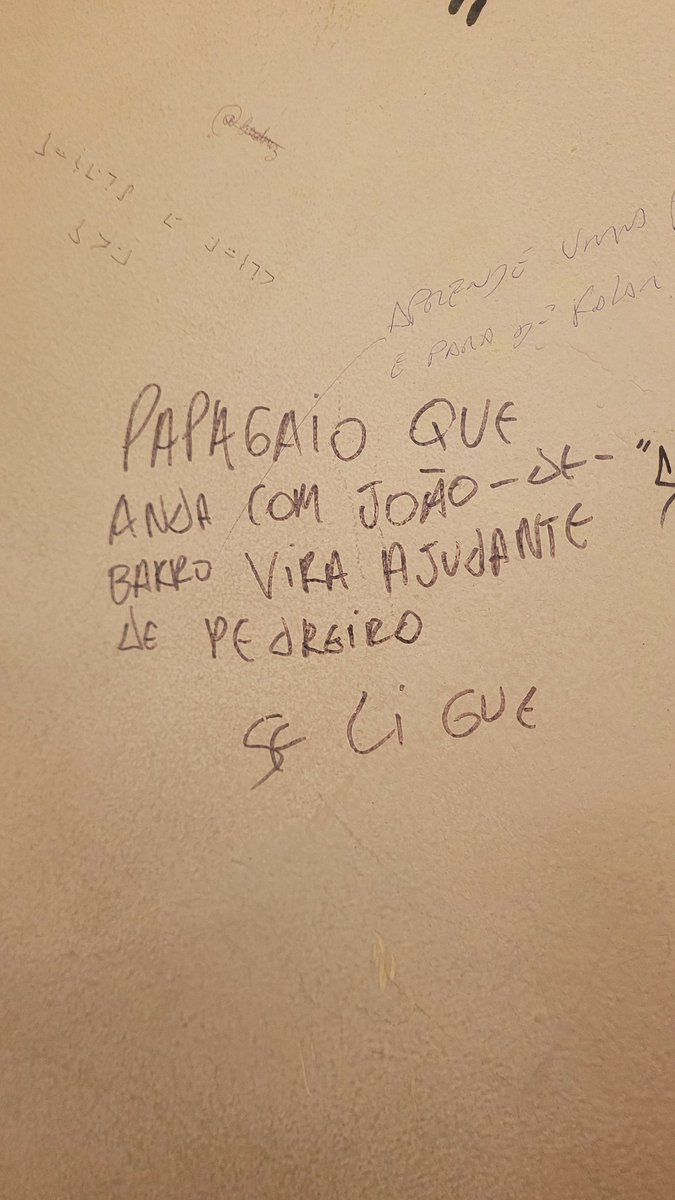 APRENDE
E PARA DE
PAPAGAIO QUE
ANDA COM JOÃO-DE-
BARRO VIRA AJUDANTE
DE PEDREIRO
SE LIGUE